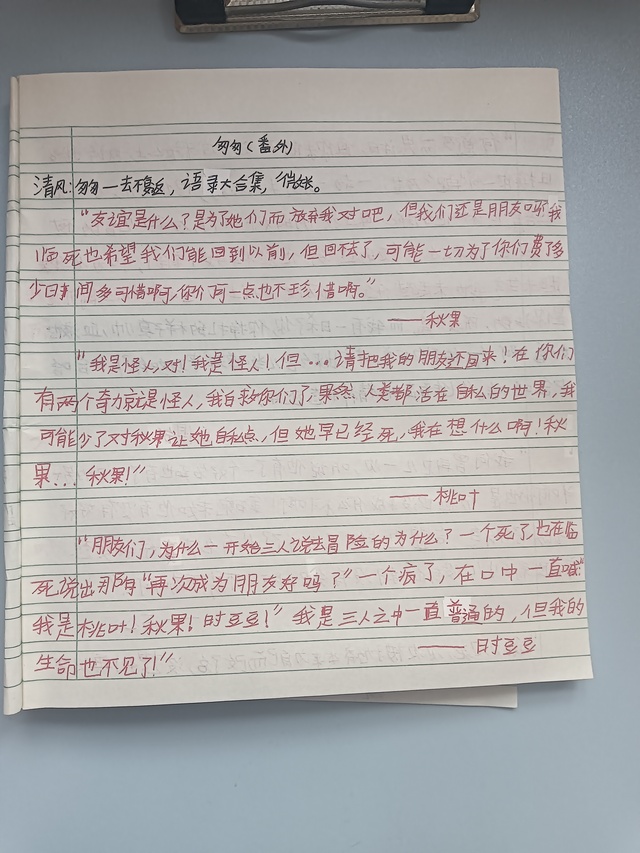 匆匆(番外)
清风:匆匆一去不复返,语录大合集,
"友谊是什么?是为了她们而放弃我对吧,但我们还是朋友呀我
临死也希望我们能回到以前,但回不去了,可能一切为了你们费了多
少日时间多可惜啊,你们一点也不珍惜啊。"
——秋果
"我是怪人,对!我是怪人!但…请把我的朋友还回来!在你们
有两个奇力就是怪人,我白救你们了,果然人类都活在自私的世界,我
可能少了对秋果让她自私点,但她早已经死,我在想什么啊!秋
果...秋果!"
——桃叶
"朋友们,为什么一开始三人说去冒险的为什么?一个死了也在临
死说出那句"再次成为朋友好吗?"一个疯了,在口中一直喊:"
我是桃叶!秋果!时豆豆!"我是三人之中一直普通的,但我的
生命也不见了!"
——时豆豆